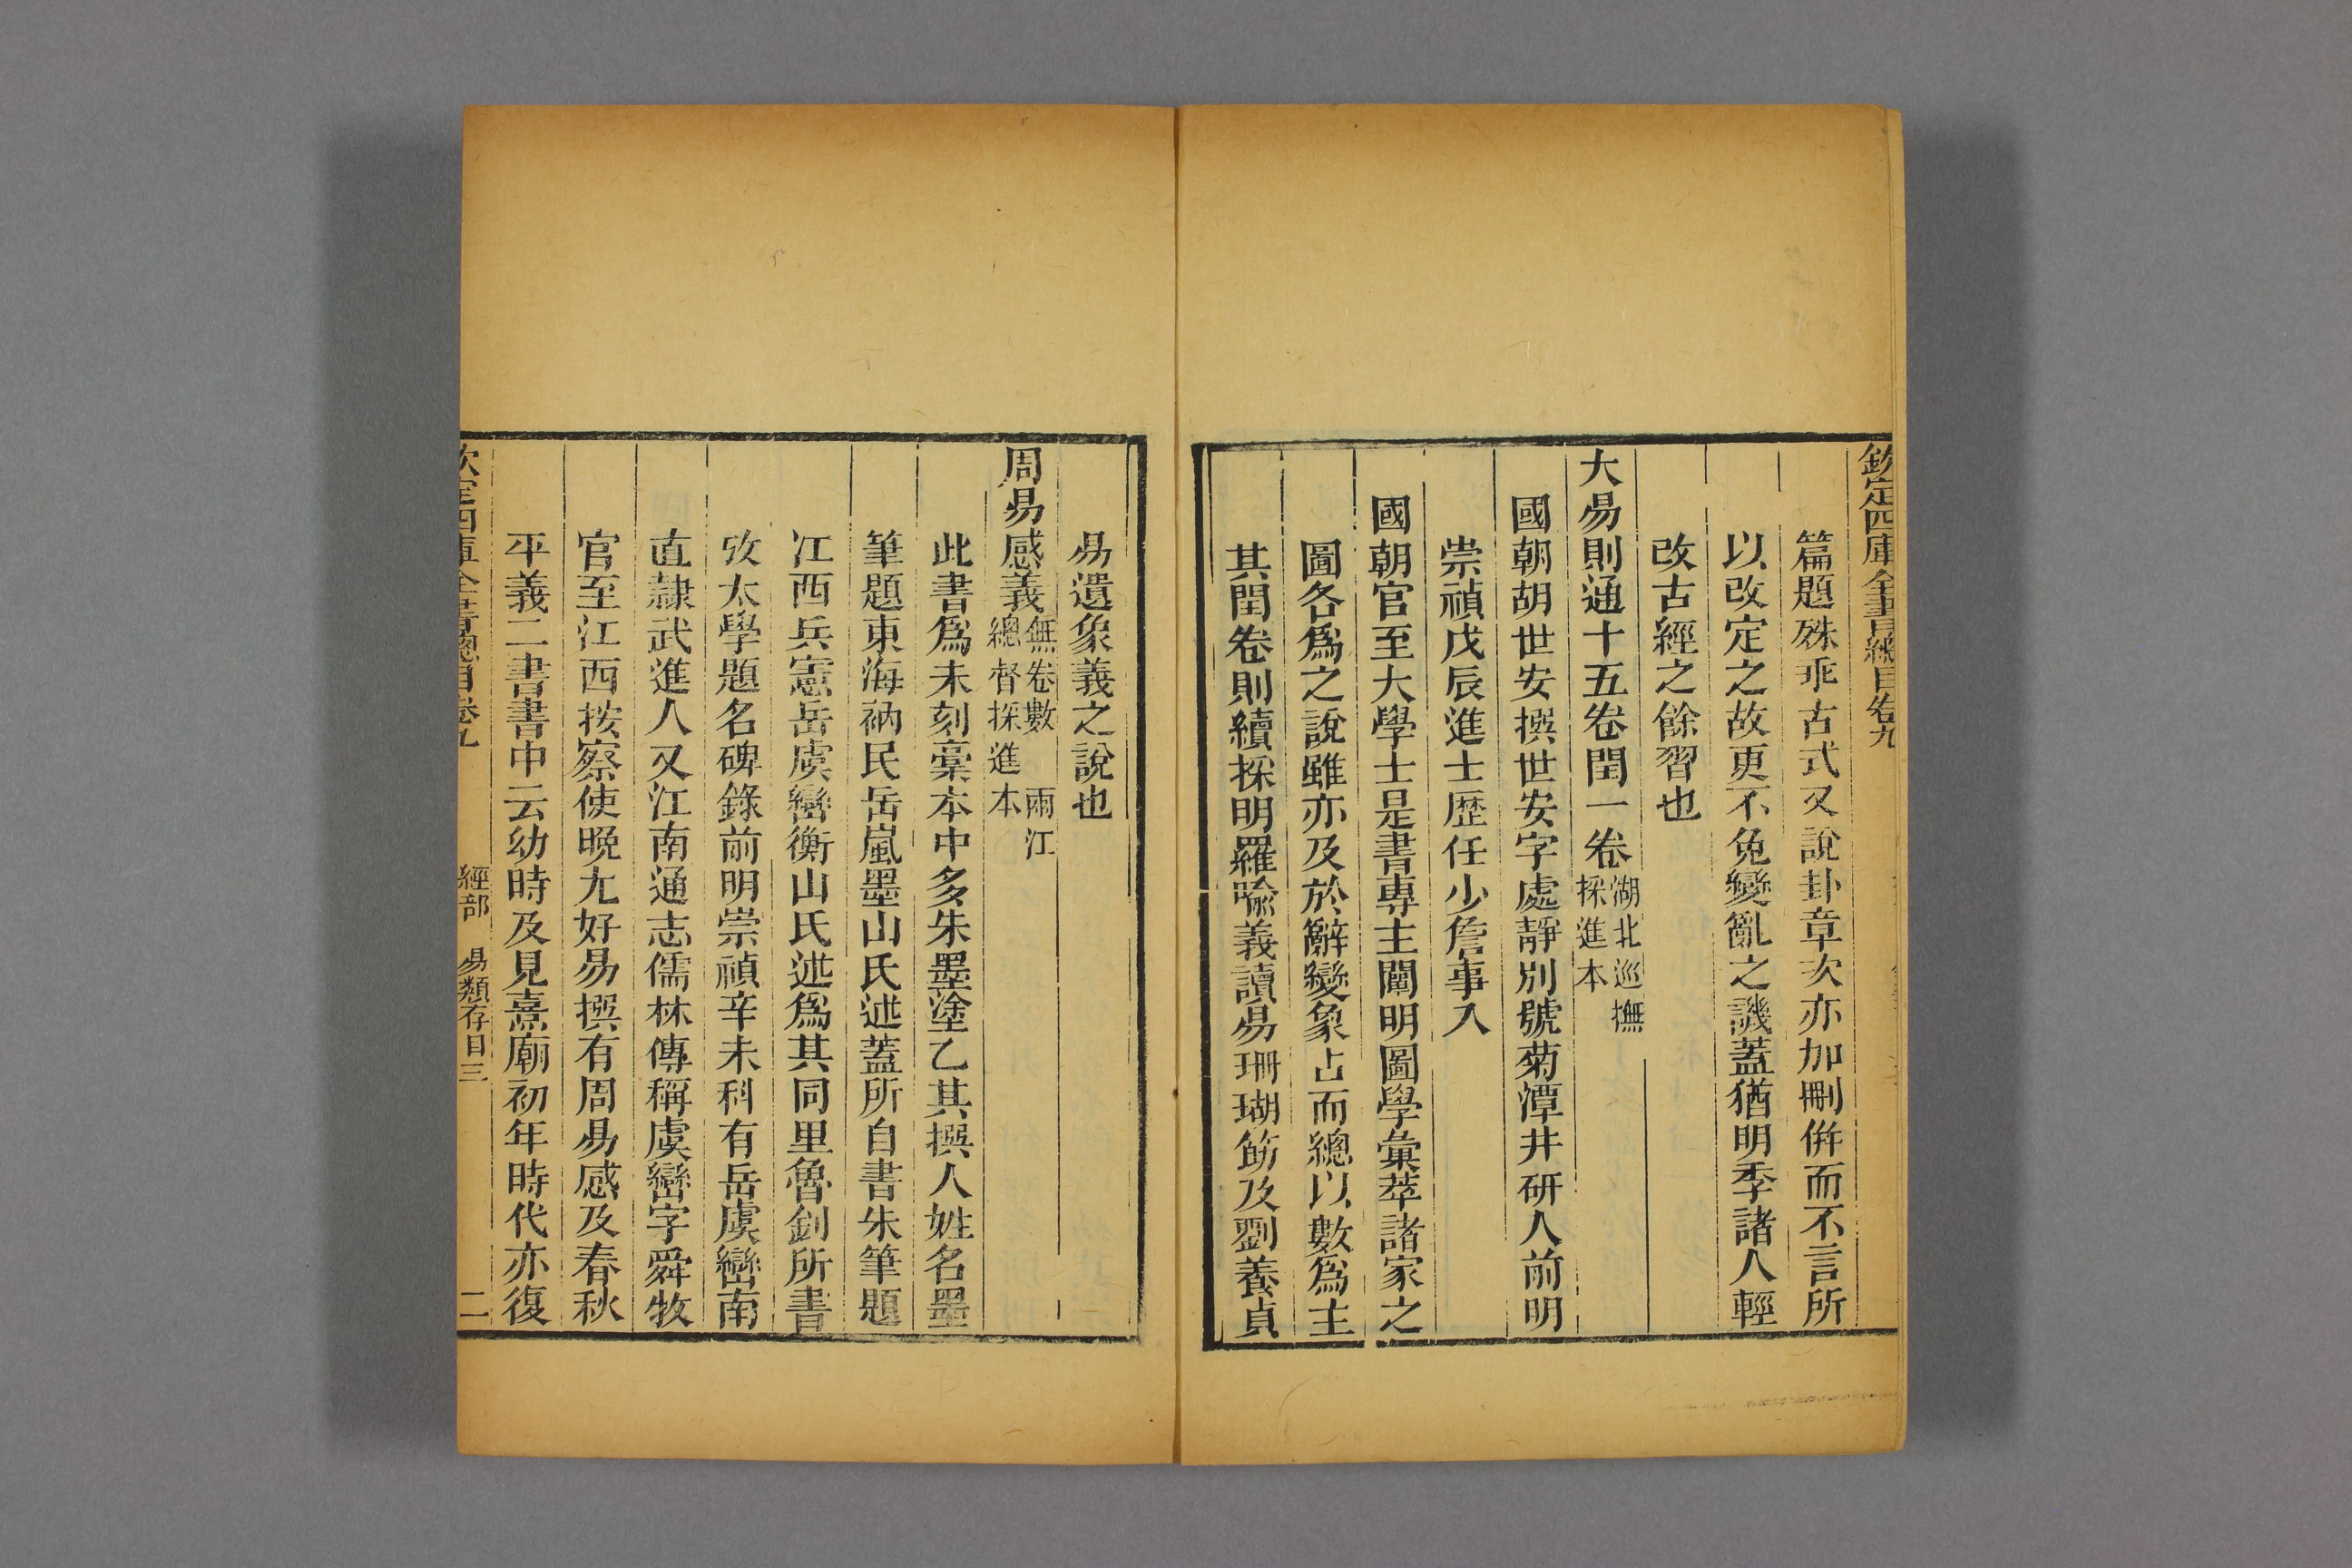 欽定四庫全書總目卷九
篇題殊乖古式又說卦章次亦加刪倂而不言所
以改定之故更不免變亂之譏蓋猶明季諸人輕
改古經之餘習也
大易則通十五卷閏一卷湖北巡撫採進本
國朝胡世安撰世安字處靜別號菊潭井硏人前明
崇禎戊辰進士歷任少詹事入
國朝官至大學士是書專主闡明圖學彙萃諸家之
圖各爲之說雖亦及於辭變象占而總以數爲主
其閏卷則續採明羅喻義讀易珊瑚笏及劉養貞
易遺象義之說也
周易感義無卷數兩江總督採進本
此書爲未刻稾本中多朱墨塗乙其撰人姓名墨
筆題東海衲民岳嵐墨山氏述蓋所自書朱筆題
江西兵憲岳虞巒衡山氏述爲其同里魯釗所書
攷太學題名碑錄前明崇禎辛未科有岳虞巒南
直隸武進人又江南通志儒林傳稱虞巒字舜牧
官至江西按察使晚尤好易撰有周易感及春秋
平義二書書中云幼時及見熹廟初年時代亦復
欽定四庫全書總目卷九 經部 易類存目三 二